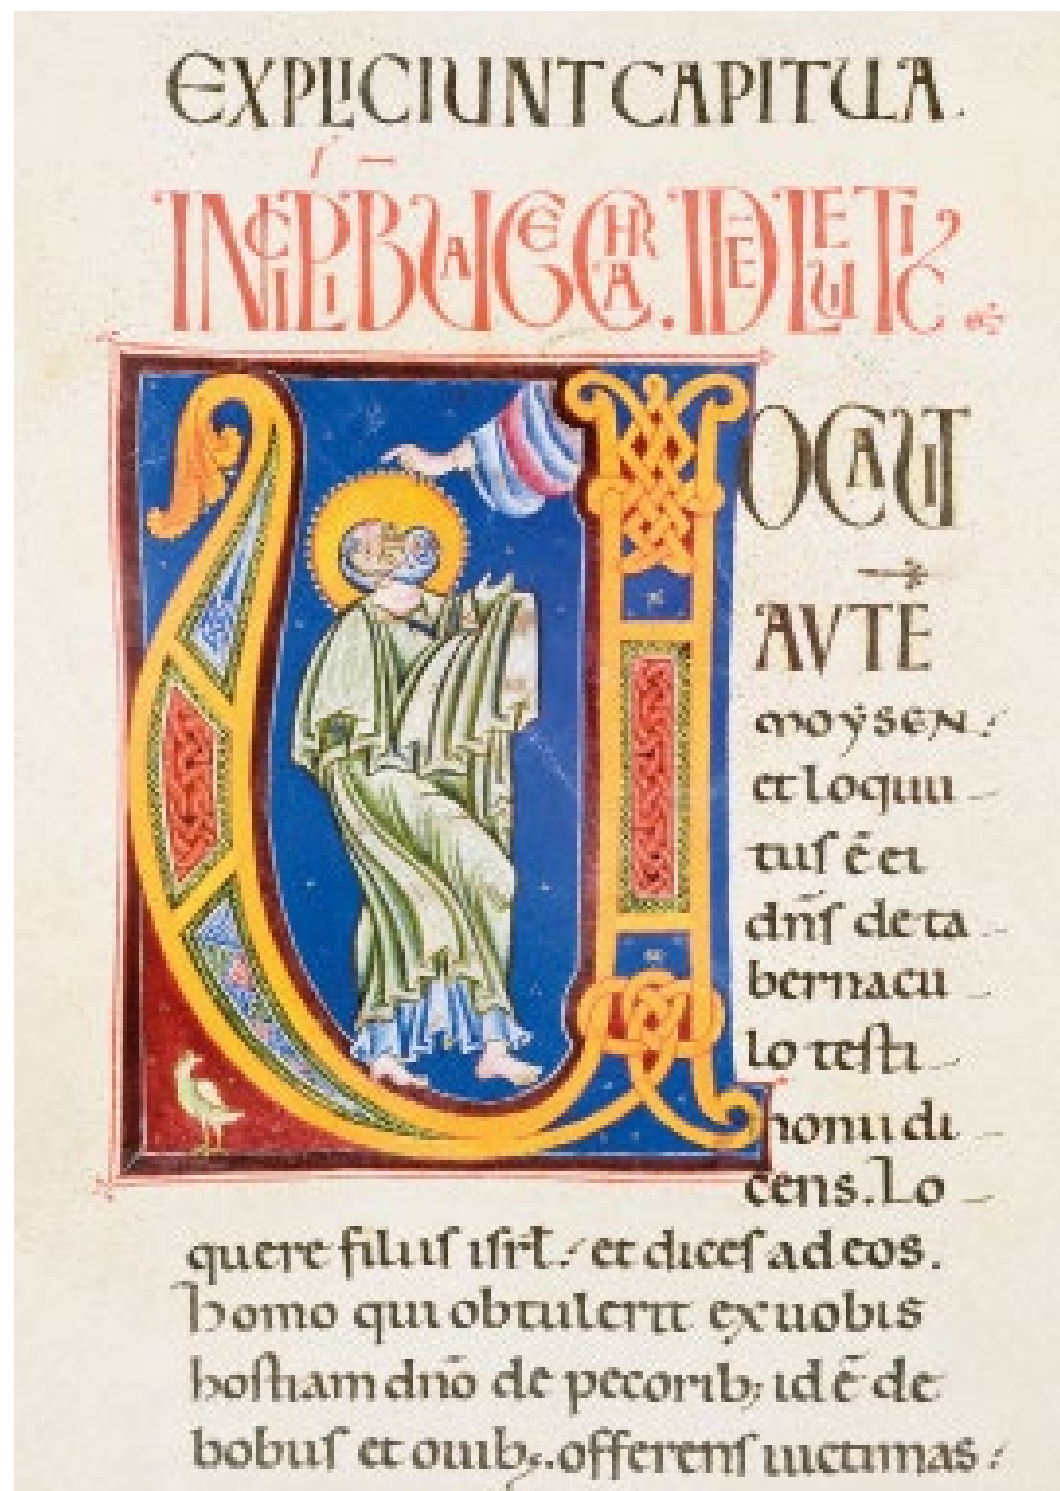 EXPLICIUNT CAPITULA.
INCIPIT LIB̄ UAGECHRA. ID Ē LEUITIC
UOCAUIT
AVTĒ
moẏsen:
et loquu
tuſ ē ei
dn̄ſ de ta
bernacu
lo teſti
monii di
cens. Lo
quere filiiſ iſrl̄: et diceſ ad eos.
homo qui obtulerit ex uobis
hoſtiam dn̄o de pecorib; id ē de
bobuſ et ouib; offerenſ uictimas: